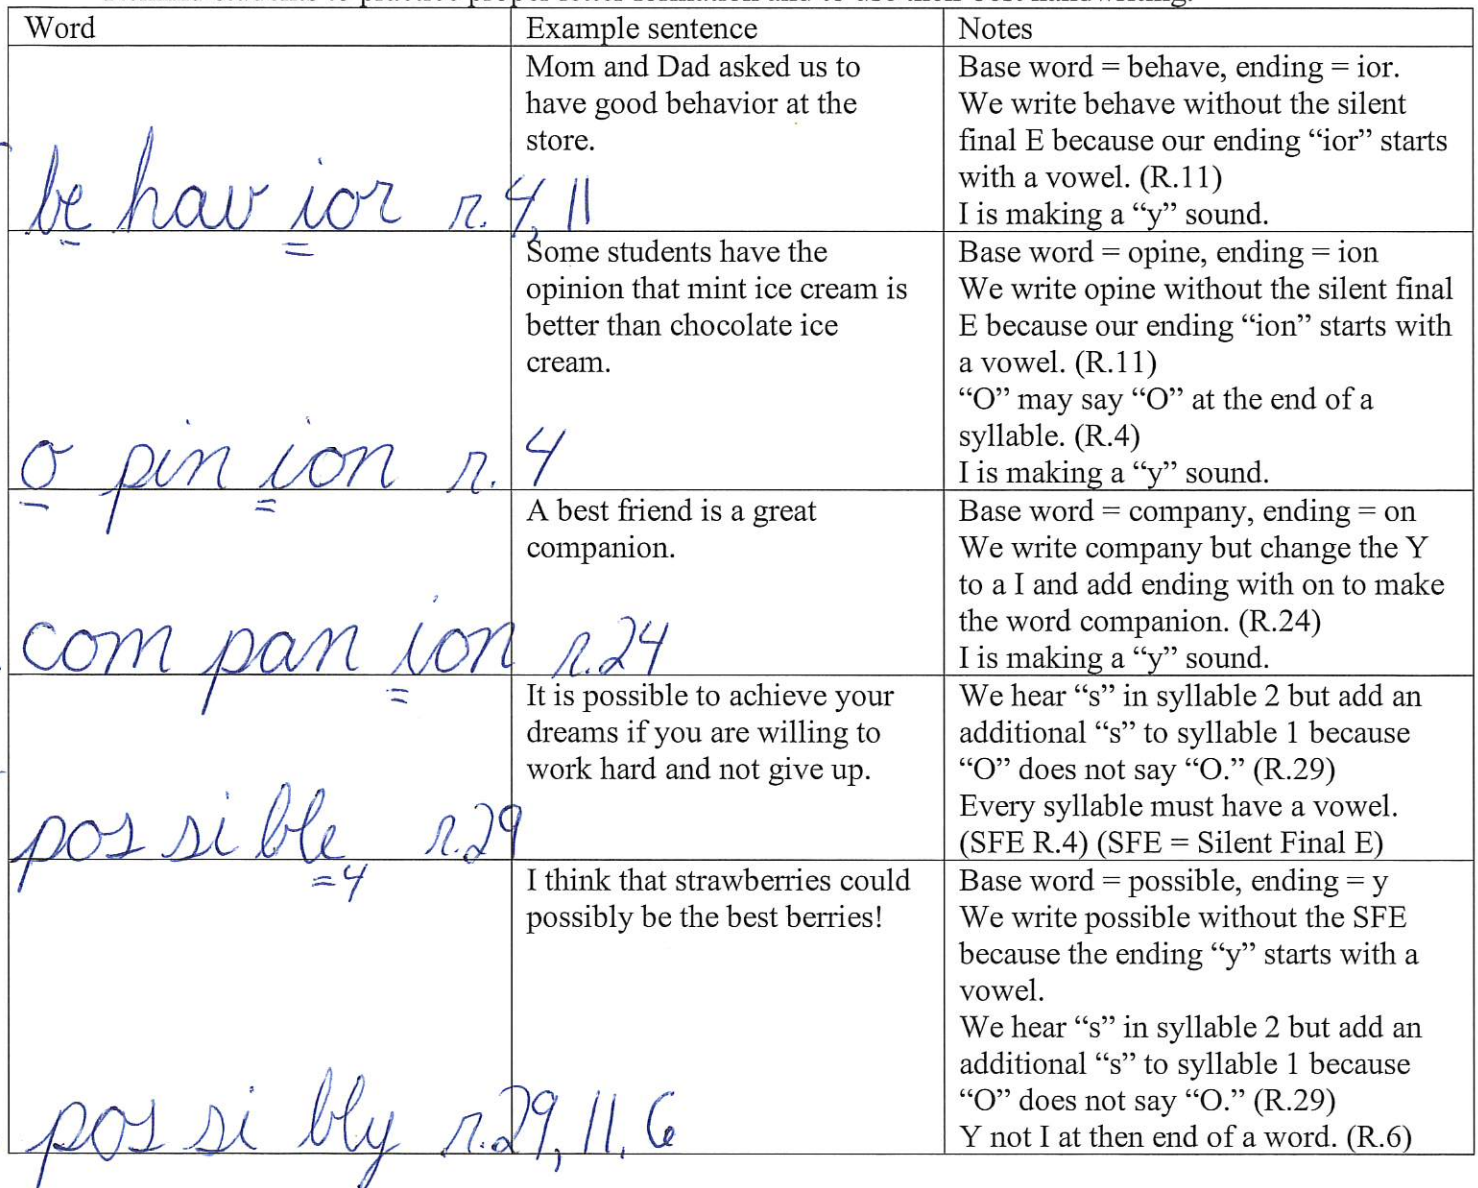 Remind students to practice proper letter formation and to use their best handwriting.
Word
Example sentence
Notes
be hav ior r. 4, 11
Mom and Dad asked us to
have good behavior at the
store.
Base word = behave, ending = ior.
We write behave without the silent
final E because our ending “ior” starts
with a vowel. (R.11)
I is making a “y” sound.
o pin ion r. 4
Some students have the
opinion that mint ice cream is
better than chocolate ice
cream.
Base word = opine, ending = ion
We write opine without the silent final
E because our ending “ion” starts with
a vowel. (R.11)
“O” may say “O” at the end of a
syllable. (R.4)
I is making a “y” sound.
com pan ion r.24
A best friend is a great
companion.
Base word = company, ending = on
We write company but change the Y
to a I and add ending with on to make
the word companion. (R.24)
I is making a “y” sound.
pos si ble r.29
=4
It is possible to achieve your
dreams if you are willing to
work hard and not give up.
We hear “s” in syllable 2 but add an
additional “s” to syllable 1 because
“O” does not say “O.” (R.29)
Every syllable must have a vowel.
(SFE R.4) (SFE = Silent Final E)
pos si bly r.29, 11, 6
I think that strawberries could
possibly be the best berries!
Base word = possible, ending = y
We write possible without the SFE
because the ending “y” starts with a
vowel.
We hear “s” in syllable 2 but add an
additional “s” to syllable 1 because
“O” does not say “O.” (R.29)
Y not I at then end of a word. (R.6)